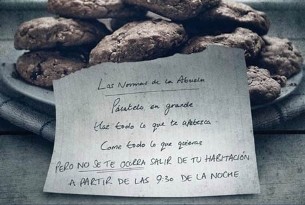 Las Normas de la Abuela
Pásatelo en grande
Haz todo lo que te apetezca
Come todo lo que quieras
PERO NO SE TE OCURRA SALIR DE TU HABITACIÓN
A PARTIR DE LAS 9:30 DE LA NOCHE